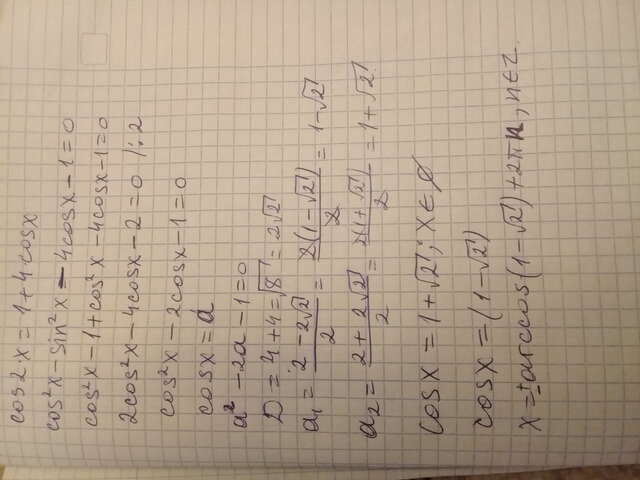 cos2·x = 1+4·cosx
cos²x – sin²x – 4cosx – 1 = 0
cos²x – 1 + cos²x – 4cosx – 1 = 0
2cos²x – 4cosx – 2 = 0 /:2
cos²x – 2cosx – 1 = 0
cosx = a
a² – 2a – 1 = 0
D = 4 + 4 = √8 = 2√2
a₁ = (2 – 2√2)/2 = 2(1 – √2)/2 = 1 – √2
a₂ = (2 + 2√2)/2 = 2(1 + √2)/2 = 1 + √2
cosx = 1 + √2; x ∈ ∅
cosx = (1 – √2)
x = ± arccos(1 – √2) + 2πn, n ∈ Z